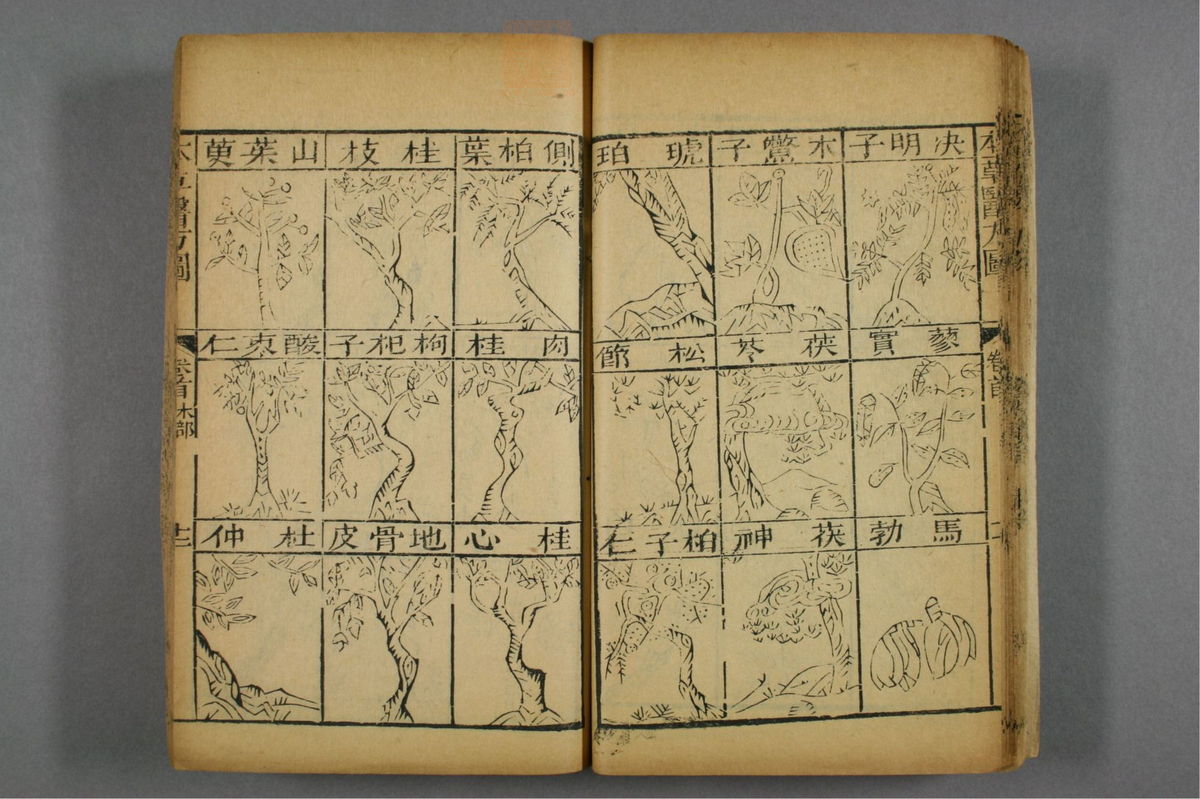 本草醫方圖
卷首
決明子
木鱉子
琥珀
蓼實
茯苓
松節
馬勃
茯神
柏子仁
側柏葉
桂枝
山茱萸
肉桂
枸杞子
酸棗仁
桂心
地骨皮
杜仲
卷首 木部
廿二